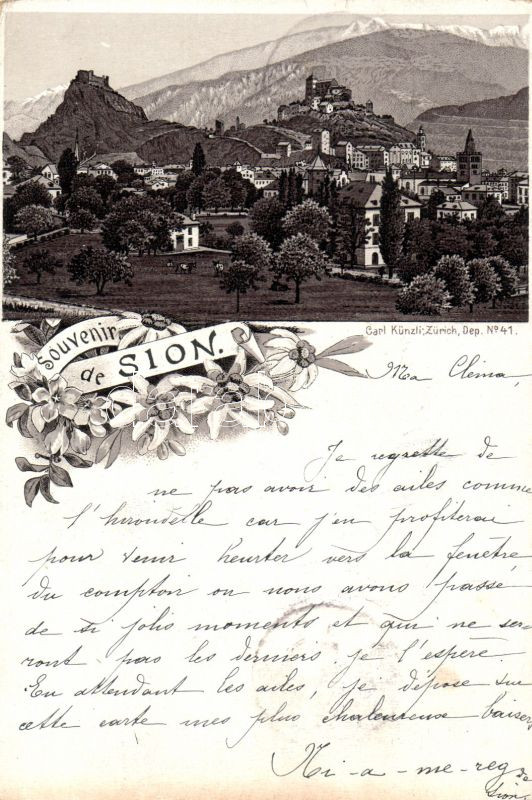 Souvenir
de SION.
Carl Künzli, Zürich, Dep. No 41.
Ma Clema,
Je regrette de
ne pas avoir des ailes comme
l'hirondelle car j'en profiterai
pour venir heurter vers la fenêtre
du comptoir ou nous avons passé
de si jolis moments et qui ne se-
ront pas les derniers je l'espère.
En attendant les ailes, je dépose sur
cette carte mes plus chaleureuse baisers
Mi-a-me-reg
de Sion